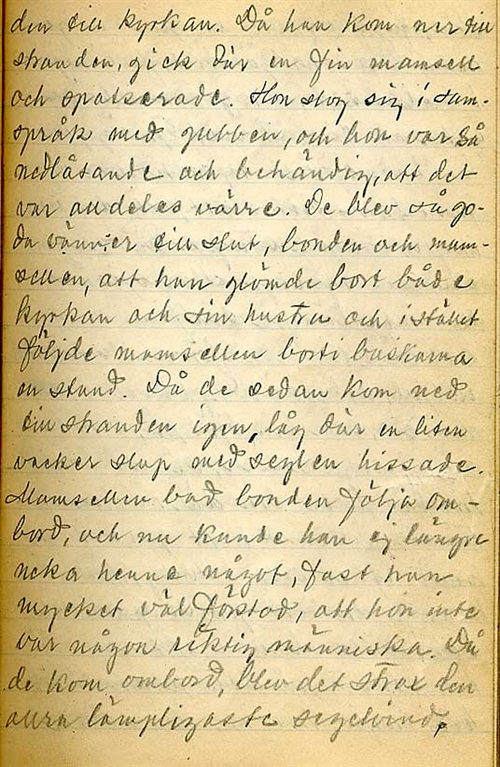 den till kyrkan. Då han kom ner till
stranden, gick där en fin mamsell
och spatserade. Hon slog sig i sam-
språk med gubben, och hon var så
nedlåtande och behändig, att det
var alldeles värre. De blev så go-
da vänner till slut, bonden och mam-
sellen, att han glömde bort både
kyrkan och sin hustru och i stället
följde mamsellen borti buskarna
en stund. Då de sedan kom ned
till stranden igen, låg där en liten
vacker slup med seglen hissade.
Mamsellen bad bonden följa om-
bord, och nu kunde han ej längre
neka henne något, fast han
mycket väl förstod, att hon inte
var någon riktig människa. Då
de kom ombord, blev det strax den
allra lämpligaste segelvind,